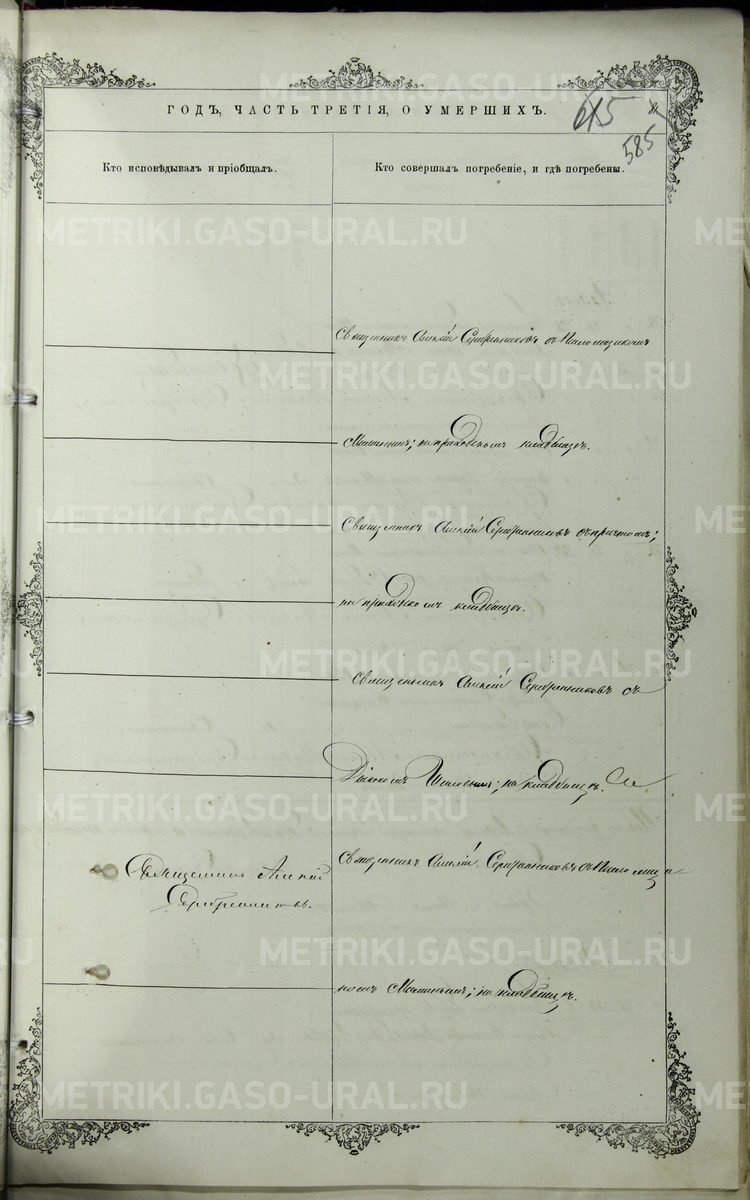 ГОДЪ, ЧАСТЬ ТРЕТІЯ, О УМЕРШИХЪ.
615
585
Кто исповѣдывалъ и пріобщалъ.
Кто совершалъ погребеніе, и гдѣ погребены.
Священникъ Алексій Серебренниковъ съ Псаломщикомъ
Мамынымъ; на приходскомъ кладбищѣ.
Священникъ Алексій Серебренниковъ съ причтомъ;
на приходскомъ кладбищѣ.
Священникъ Алексій Серебренниковъ съ
Діакономъ; на кладбищѣ.
Священникъ Алексій
Серебренниковъ.
Священникъ Алексій Серебренниковъ съ Псаломщи
комъ Мамынымъ; на кладбищѣ.
METRIKI.GASO-URAL.RU